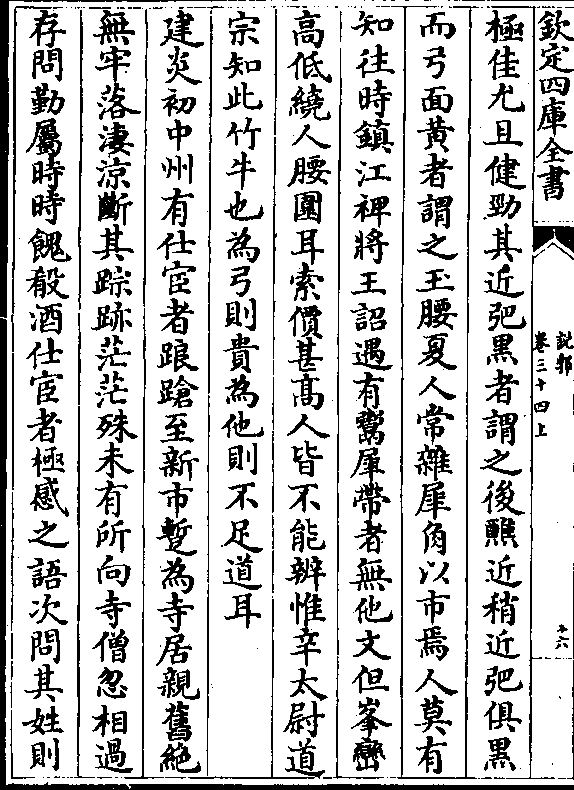 欽定四庫全書
説郛
卷三十四上
十六
極佳尤且健勁其近弝黑者謂之後醮近稍近弝俱黑
而弓面黄者謂之玉腰夏人常雜犀角以市焉人莫有
知往時鎮江裨將王詔遇有鬻犀帶者無他文但峯巒
高低繞人腰圍耳索價甚髙人皆不能辨惟辛太尉道
宗知此竹牛也為弓則貴為他則不足道耳
建炎初中州有仕宦者踉蹌至新市暫為寺居親舊絶
無牢落淒涼斷其踪跡茫茫殊未有所向寺僧忽相過
存問勤屬時時餽殽酒仕宦者極感之語次問其姓則